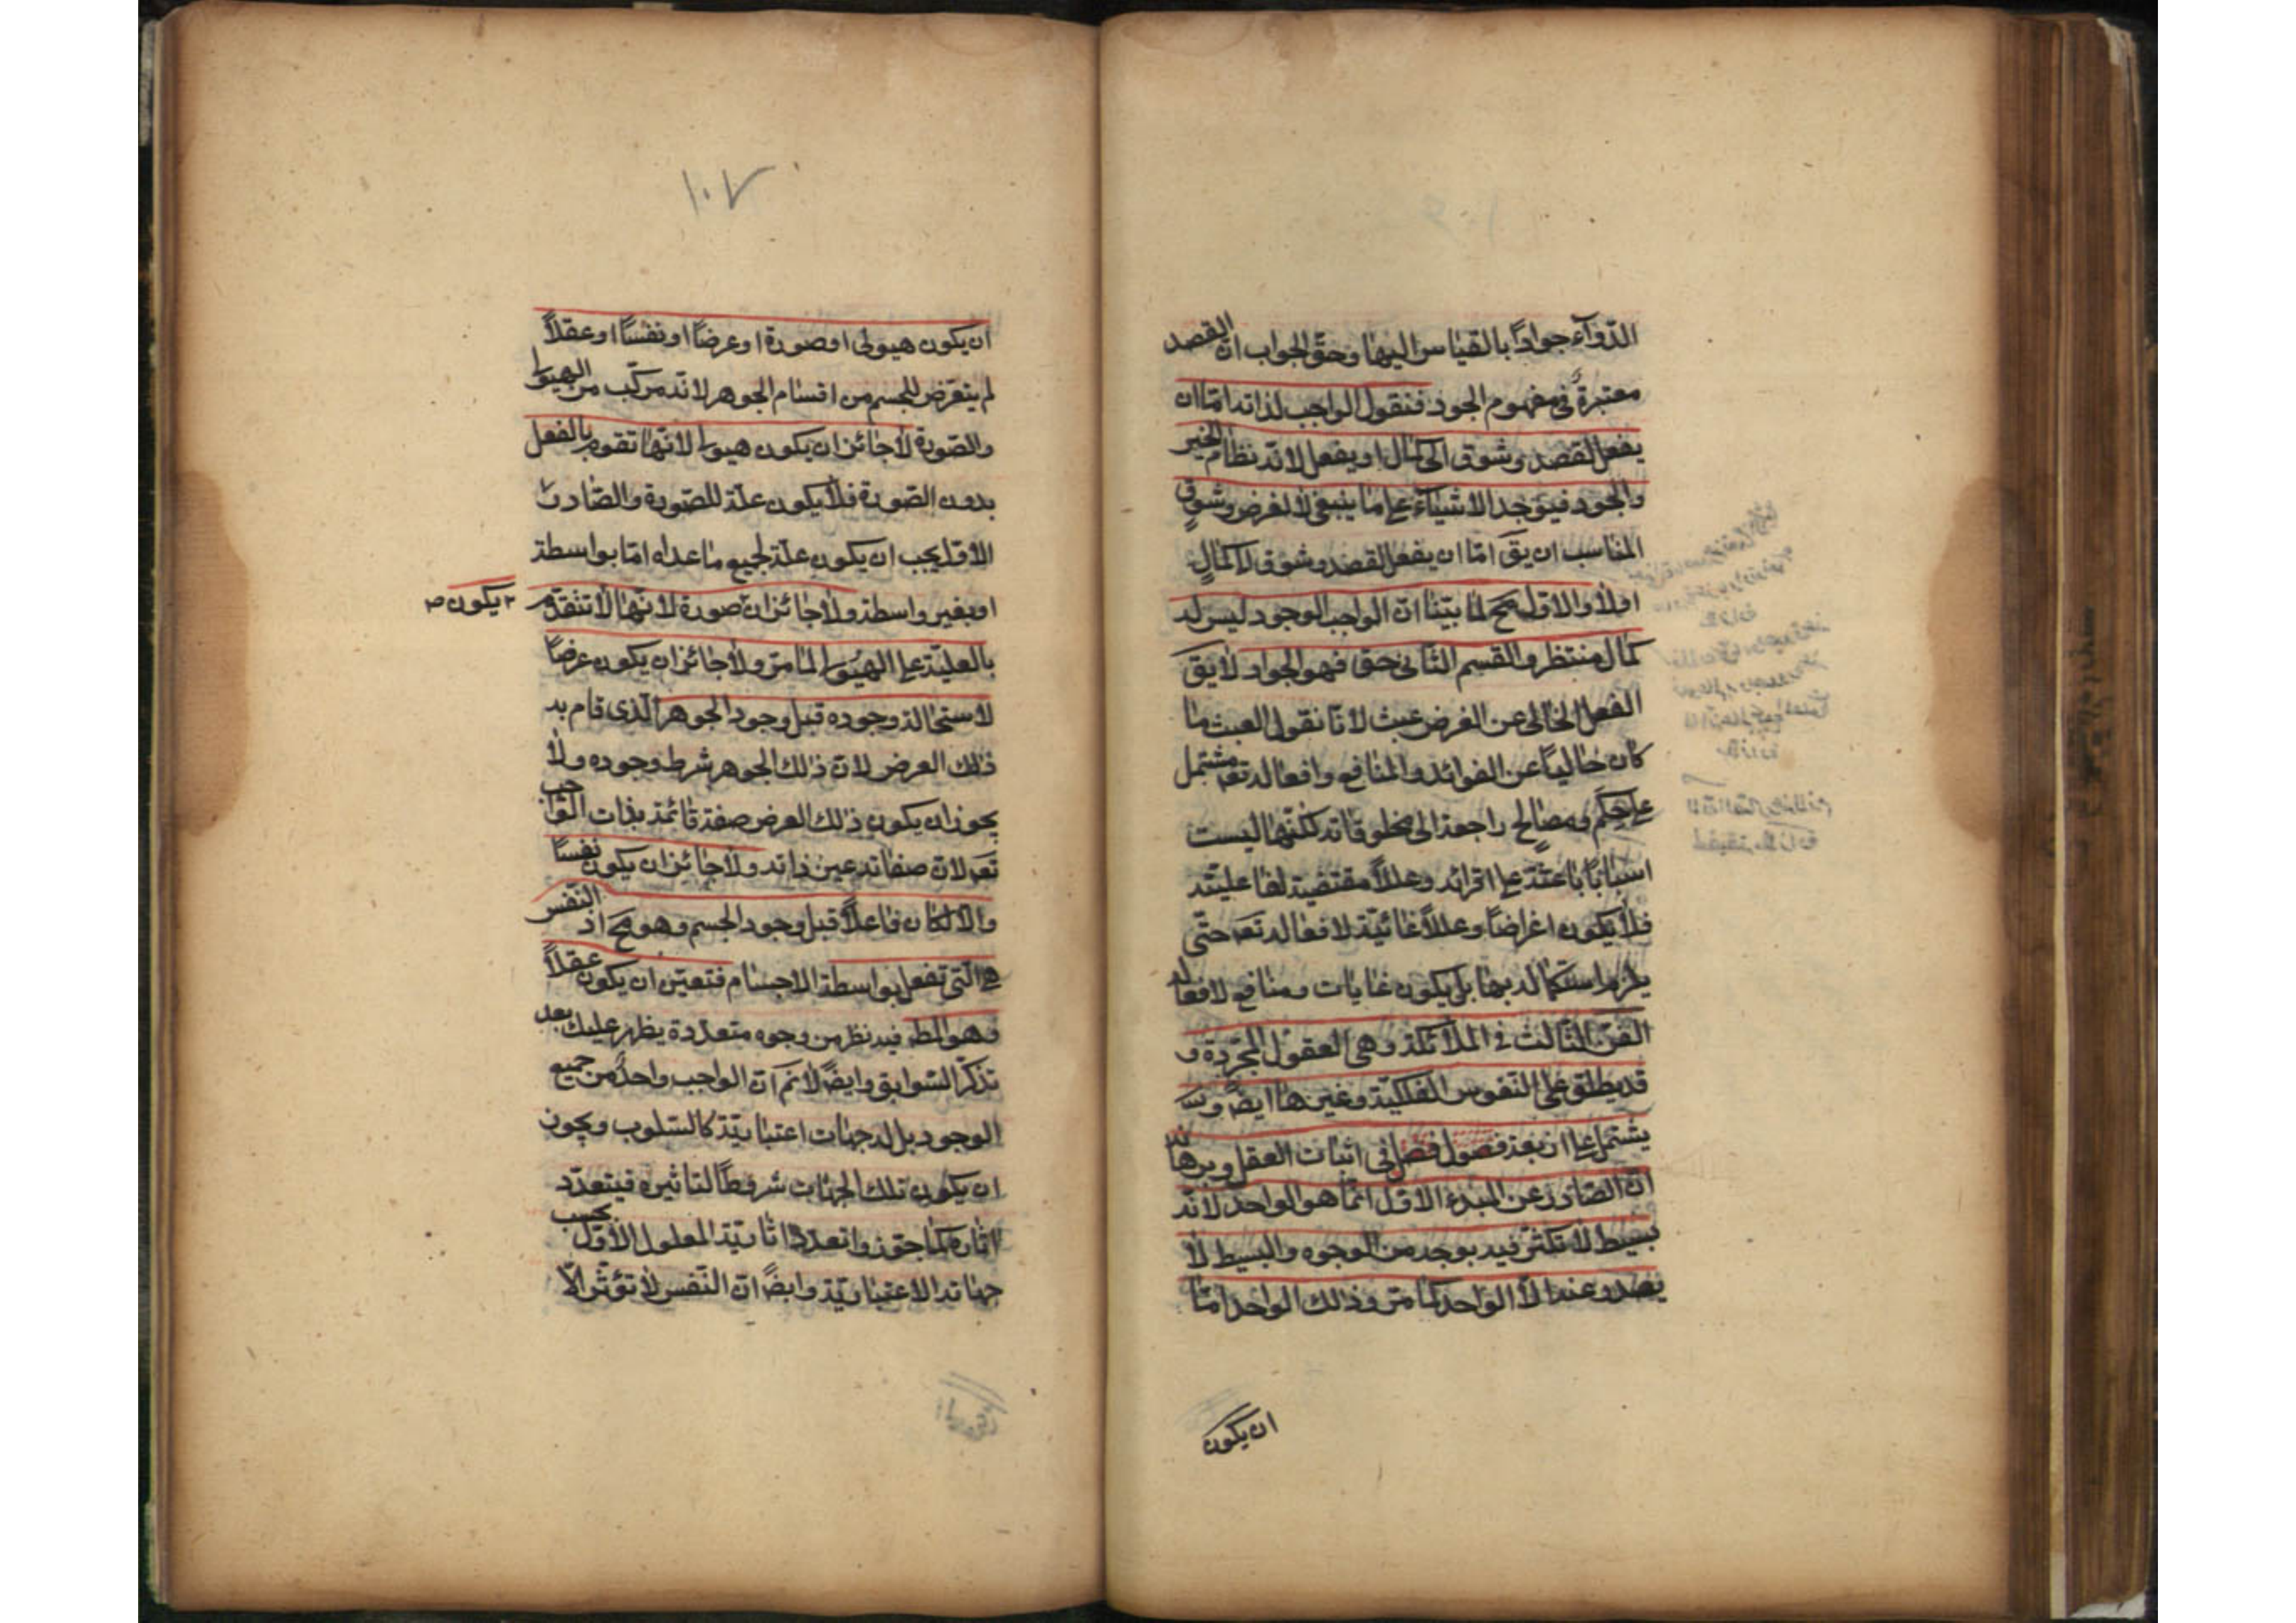 الدّواء جواداً بالقياس اليها وحقّ الجواب انّ القصد
معتبرة فى مفهوم الجود فنقول الواجب لذاته امّا ان
يفعل لقصد وشوق الى كمال او يفعل لانّه نظام الخير
والجود فيوجد الاشياء على ما ينبغى لا لغرض وشوق
المناسب ان يقَ امّا ان يفعل لقصد وشوق لكمال
اولا والاول مح لما بيّنا انّ الواجب الوجود ليس له
كمال منتظر والقسم الثانى حق فهو الجواد لا يقَ
الفعل الخالى عن الغرض عبث لانّا نقول العبث ما
كان خالياً عن الفوائد والمنافع وافعاله تعَ مشتمل
على حِكَم ومصالح راجعة الى مخلوقاته لكنّها ليست
اسباباً باعثة على اقرائه وعللاً مقتضية لفاعليّته
فلا يكون اغراضاً وعللاً غائيّة لافعاله تعَ حتّى
يلزم استكماله بها بل يكون غايات ومنافع لافعاله
الفنّ الثالث فى الملائكة وهى العقول المجرّدة و
قد يطلق على النفوس الفلكيّة وغيرها ايضً و
يشتمل على اربعة فصول فصل فى اثبات العقل وبرهانه
انّ الصّادر عن المبدء الاوّل انّما هو الواحد لانّه
بسيط لا تكثّر فيه بوجه من الوجوه والبسيط لا
يصدر عنه الّا الواحد كما مرّ وذلك الواحد امّا
ان يكون
١٠٧
ان يكون هيولى او صورة او عرضاً او نفساً او عقلاً
لم يتعرّض للجسم من اقسام الجوهر لانّه مركّب من الهيولى
والصّورة لا جائز ان يكون هيولى لانّها تقوم بالفعل
بدون الصّورة فلا يكون علّة للصّورة والصّادر
الاوّل يجب ان يكون علّة لجميع ما عداه امّا بواسطة
او بغير واسطة ولا جائز ان صورة لانّها لا تتقدّم
يكون ص
بالعليّة على الهيولى لما مرّ ولا جائز ان يكون عرضاً
لاستحالة وجوده قبل وجود الجوهر الّذى قام به
ذلك العرض لانّ ذلك الجوهر شرط وجوده ولا
يجوز ان يكون ذلك العرض صفة قائمة بذات الواجب
تعَ لانّ صفاته عين ذاته ولا جائز ان يكون نفساً
والّا لكان فاعلاً قبل وجود الجسم وهو مح اذ النفس
هى الّتى تفعل بواسطة الاجسام فتعيّن ان يكون عقلاً
وهو المط فيه نظر من وجوه متعدّدة يظهر عليك بعد
تذكّر السّوابق وايضً لانم انّ الواجب واحدٌ من جميع
الوجود بل له جهات اعتباريّة كالسّلوب ويجوز
ان يكون تلك الجهات شروطاً لتاثيره فيتعدّد
اثاره كما جوّزوا تعدد اثاريّة المعلول الاوّل بحسب
جهاته الاعتباريّة وايضً انّ النّفس لا تؤثّر الّا